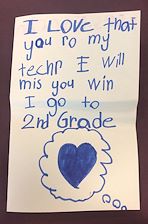 I LOVE that
you ro my
techr I will
mis you win
I go to
2nd Grade